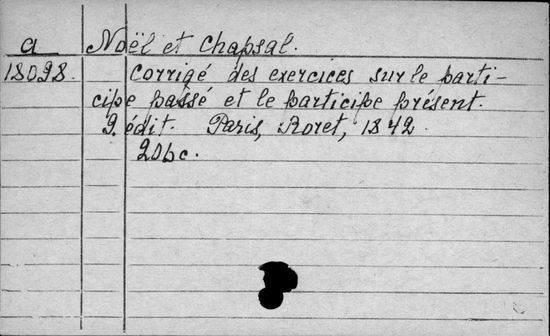 a Noël et Chapsal.
18098. Corrigé des exercices sur le parti-
cipe passé et le participe présent.
9. édit. Paris, Roret, 1842.
20bc.